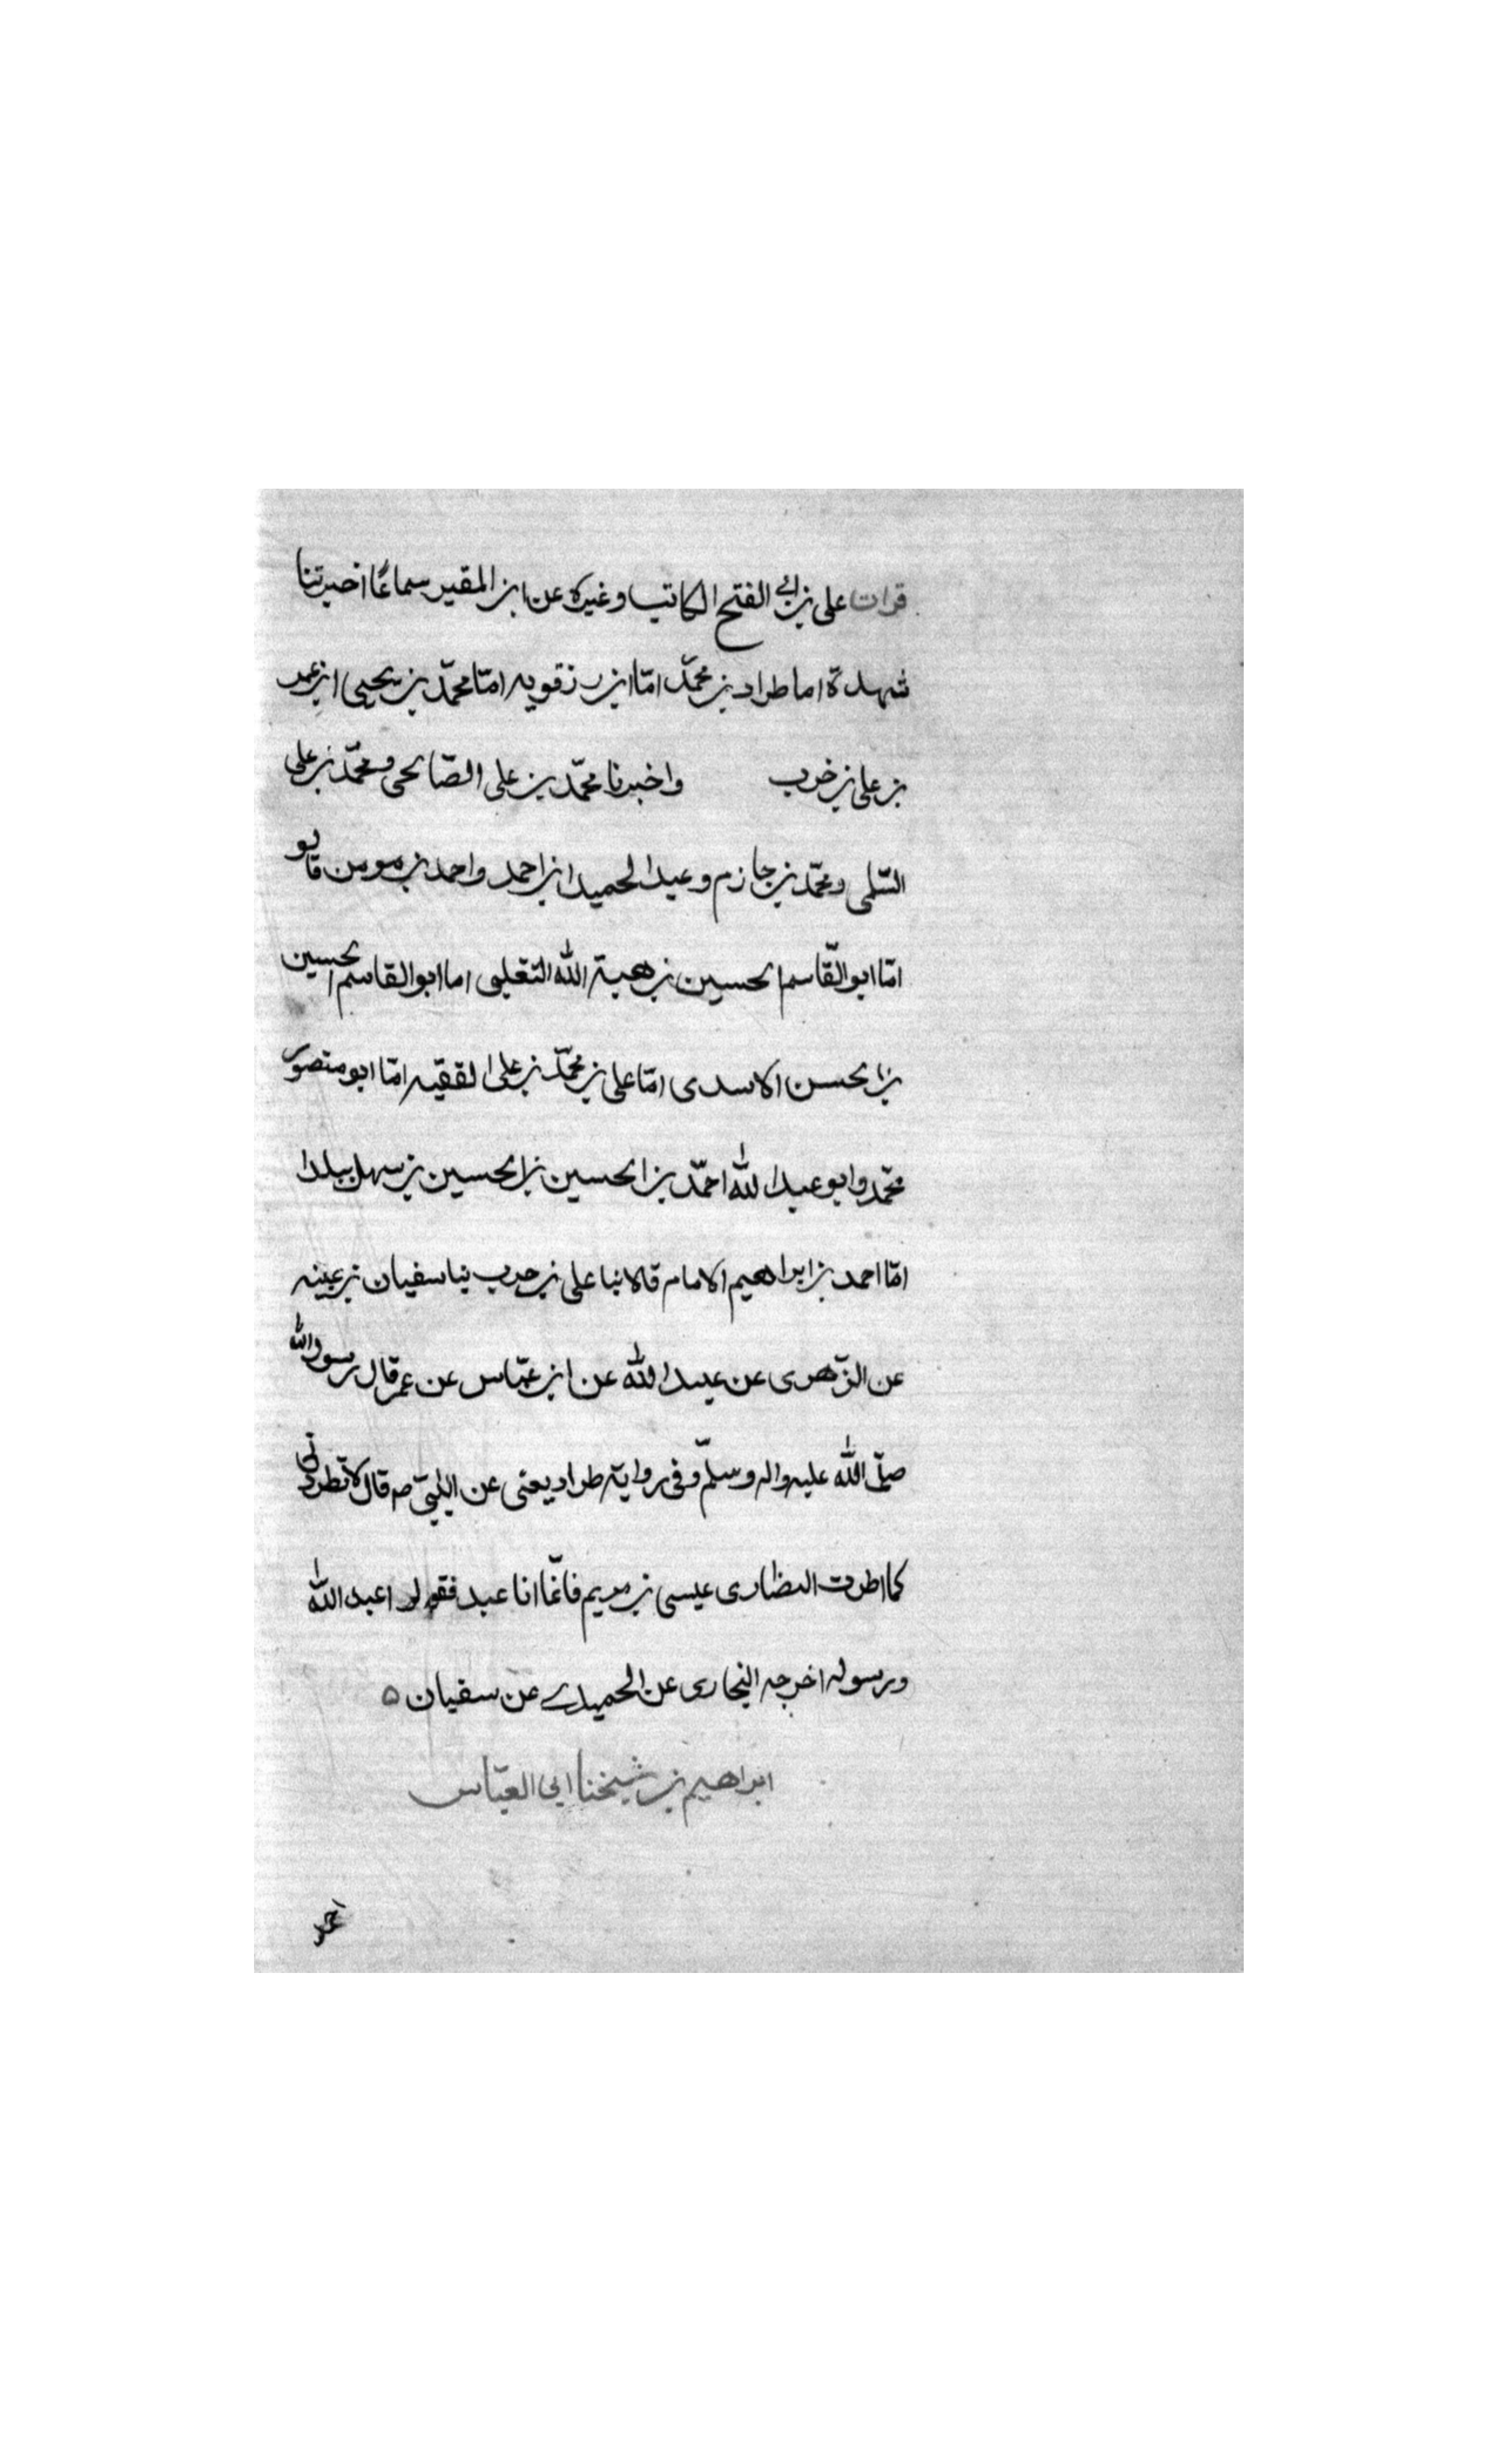 قرات على بن ابى الفتح الكاتب وغيره عن ابن المقير سماعًا اخبرتنا
شهدة اما طراد بن محمّد امّا ابن رزقويه امّا محمّد بن يحيى ابن عمر
بن على بن خرب واخبرنا محمّد بن على الصّالحى ومحمّد بن على
السّلمى ومحمّد بن جازم وعبد الحميد ابن احمد واحمد بن مومن قالو
امّا ابو القّاسم الحسين بن هبة الله التغلبى اما ابو القاسم الحسين
بن الحسن الاسدى امّا على بن محمّد بن على الفقيه امّا ابو منصور
محّمد وابو عبد الله احمّد بن الحسين بن الحسين بن سهل ببلدا
امّا احمد بن ابراهيم الامام قالا نبا على بن حرب نبا سفيان بن عينه
عن الزّهرى عن عبيد الله عن ابن عبّاس عن عمر قال رسول الله
صلّى الله عليه واله وسلّم وفى رواية طراد يعنى عن النبىّ ص قال لا تطرونى
كما اطرت النصارى عيسى بن مريم فانّما انا عبد فقولوا عبد الله
ورسوله اخرجه البخارى عن الحميدے عن سفيان ٥
ابراهيم بن شيخنا ابى العبّاس
احمد